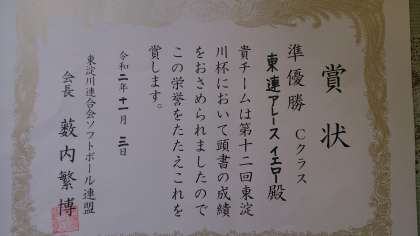 賞状
準優勝 Cクラス
東連アレース イエロー殿
貴チームは第十二回東淀
川杯において頭書の成績
をおさめられましたので
この栄誉をたたえこれを
賞します。
令和二年十一月三日
東淀川連合会ソフトボール連盟
会長 薮内繁博